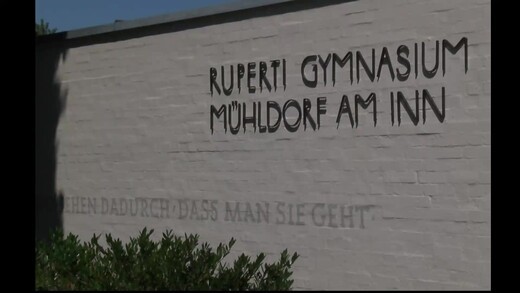 RUPERTI GYMNASIUM
MÜHLDORF AM INN
EHEN DADURCH · DASS MAN SIE GEHT ·